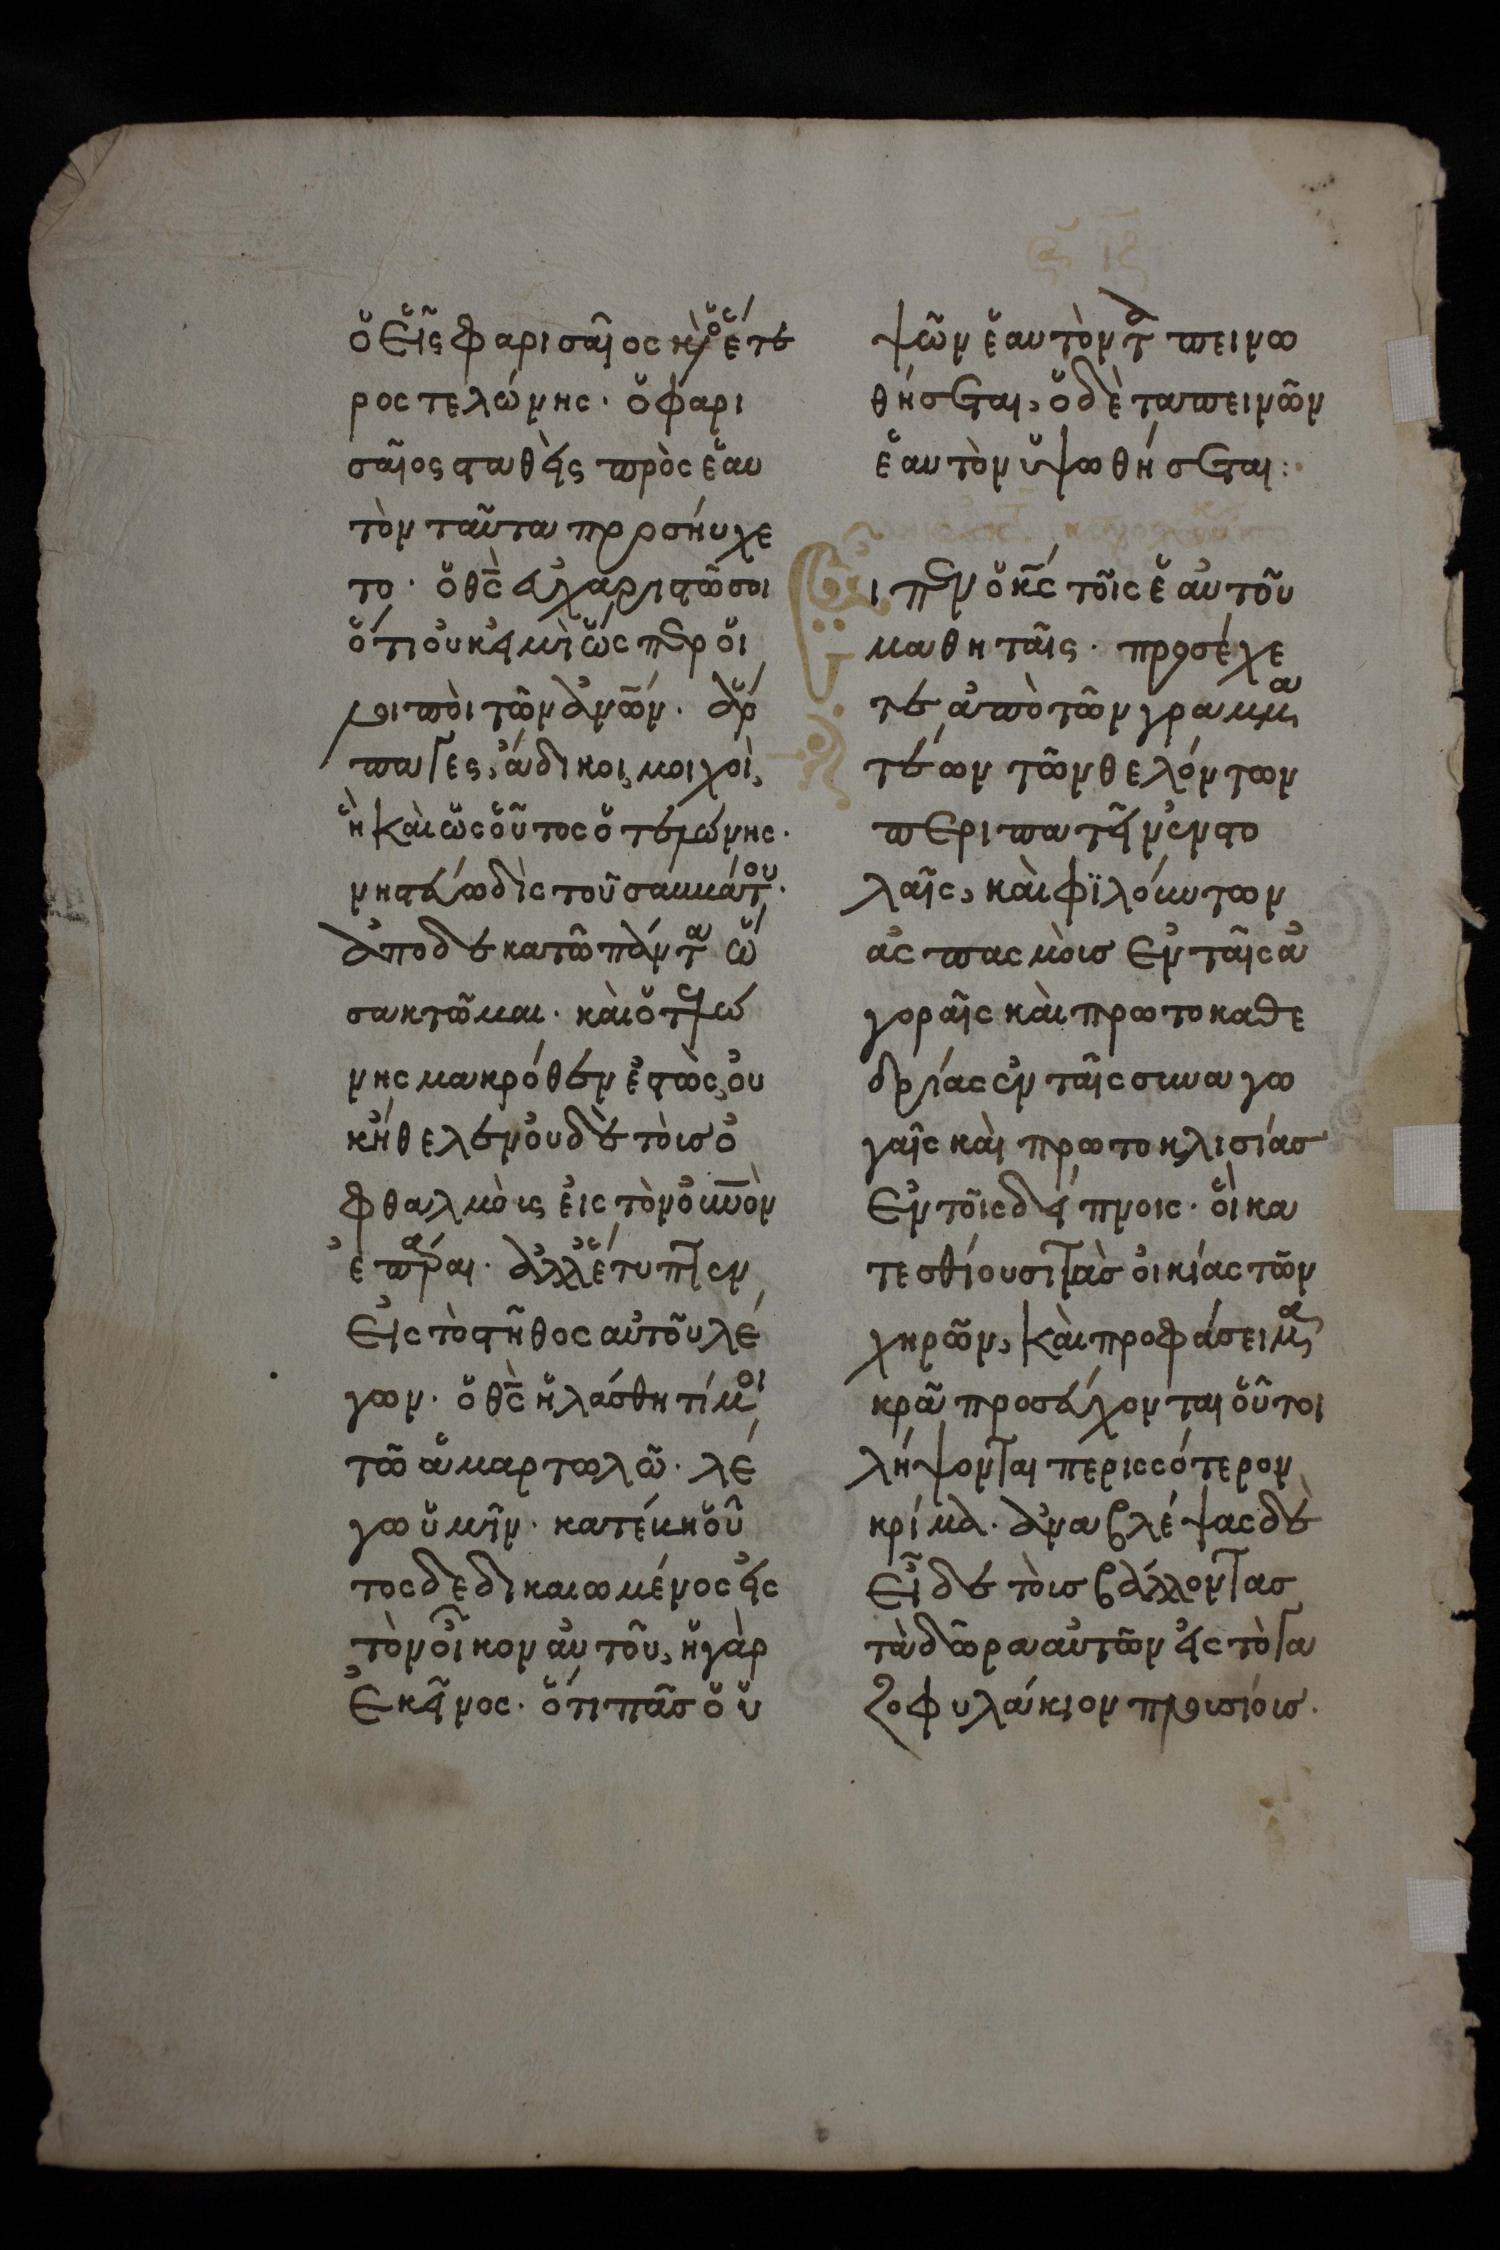 ὁ εἷς φαρισαῖος κ(αὶ) ὁ ἕτε
ρος τελώνης· ὁ φαρι
σαῖος σταθεὶς πρὸς ἑαυ
τὸν ταῦτα προσήυχε
το· ὁ θς̅ ἐυχαριστῶ σοι
ὅτι οὐκ εἰμὶ ὥς περ ὁι
λοιποὶ τῶν ἀν̅ων· ἅρ
παγες, ἄδικοι, μοιχοὶ,
ἢ καὶ ὡς οὗτος ὁ τελώνης·
νηστεύω δὶς τοῦ σαββάτου·
ἀποδεκατῶ πάντα ὅ
σα κτῶμαι· καὶ ὁ τελώ
νης μακρόθεν ἑστὼς, οὐ
κ ἤθελεν οὐδὲ τοὶς ὀ
φθαλμοὶς εἰς τὸν οὐν̅ον
ἐπᾶραι· ἀλλ' ἔτυπτεν
εἰς τὸ στῆθος αὐτοῦ λέ
γων· ὁ θς̅ ἡλάσθητί μοι
τῶ ἁμαρτωλῶ· λέ
γω ὑμῖν· κατέβη οὗ
τος δεδικαιωμένος εἰς
τὸν οἶκον αὐτοῦ, ἢ γὰρ
ἐκεῖνος· ὅτι πᾶς ὁ ὑ
ψῶν ἑαυτὸν ταπεινω
θήσεται, ὁ δὲ ταπεινῶν
ἑαυτὸν ὑψωθήσεται:
Εἶπεν ὁ κς̅ τοῖς ἑαυτοῦ
μαθηταῖς· προσέχε
τε ἀπὸ τῶν γραμμα
τέων τῶν θελόντων
περιπατεῖν ἐν στο
λαῖς, καὶ φϊλούντων
ἀσπασμοὶς ἐν ταῖς ἀ
γοραῖς καὶ πρωτοκαθε
δρίας ἐν ταῖς συναγω
γαῖς καὶ πρωτοκλισίας
ἐν τοῖς δείπνοις· ὁὶ κα
τεσθίουσι τὰς οἰκίας τῶν
χηρῶν, καὶ προφάσει μα
κρᾶ προσεύχονται οὗτοι
λήψονται περισσότερον
κρίμα· ἀναβλέψας δὲ
εἶδε τοὶς βάλλοντας
τὰ δῶρα αὐτῶν εἰς τὸ γα
ζοφυλάκιον πλουσίοις·